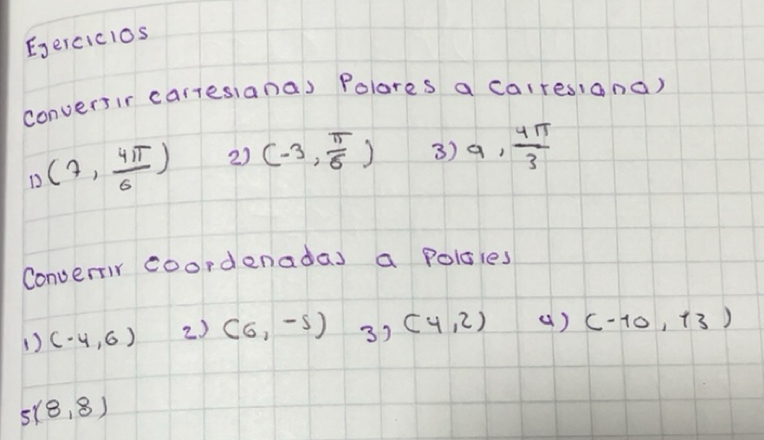 Ejercicios
Convertir cartesianas Polares a Cartesianas
1) (7, 4π/6) 2) (-3, π/6) 3) 9, 4π/3
Convertir coordenadas a Polares
1) (-4,6) 2) (6, -5) 3) (4,2) 4) (-10, 13)
5) (8,8)